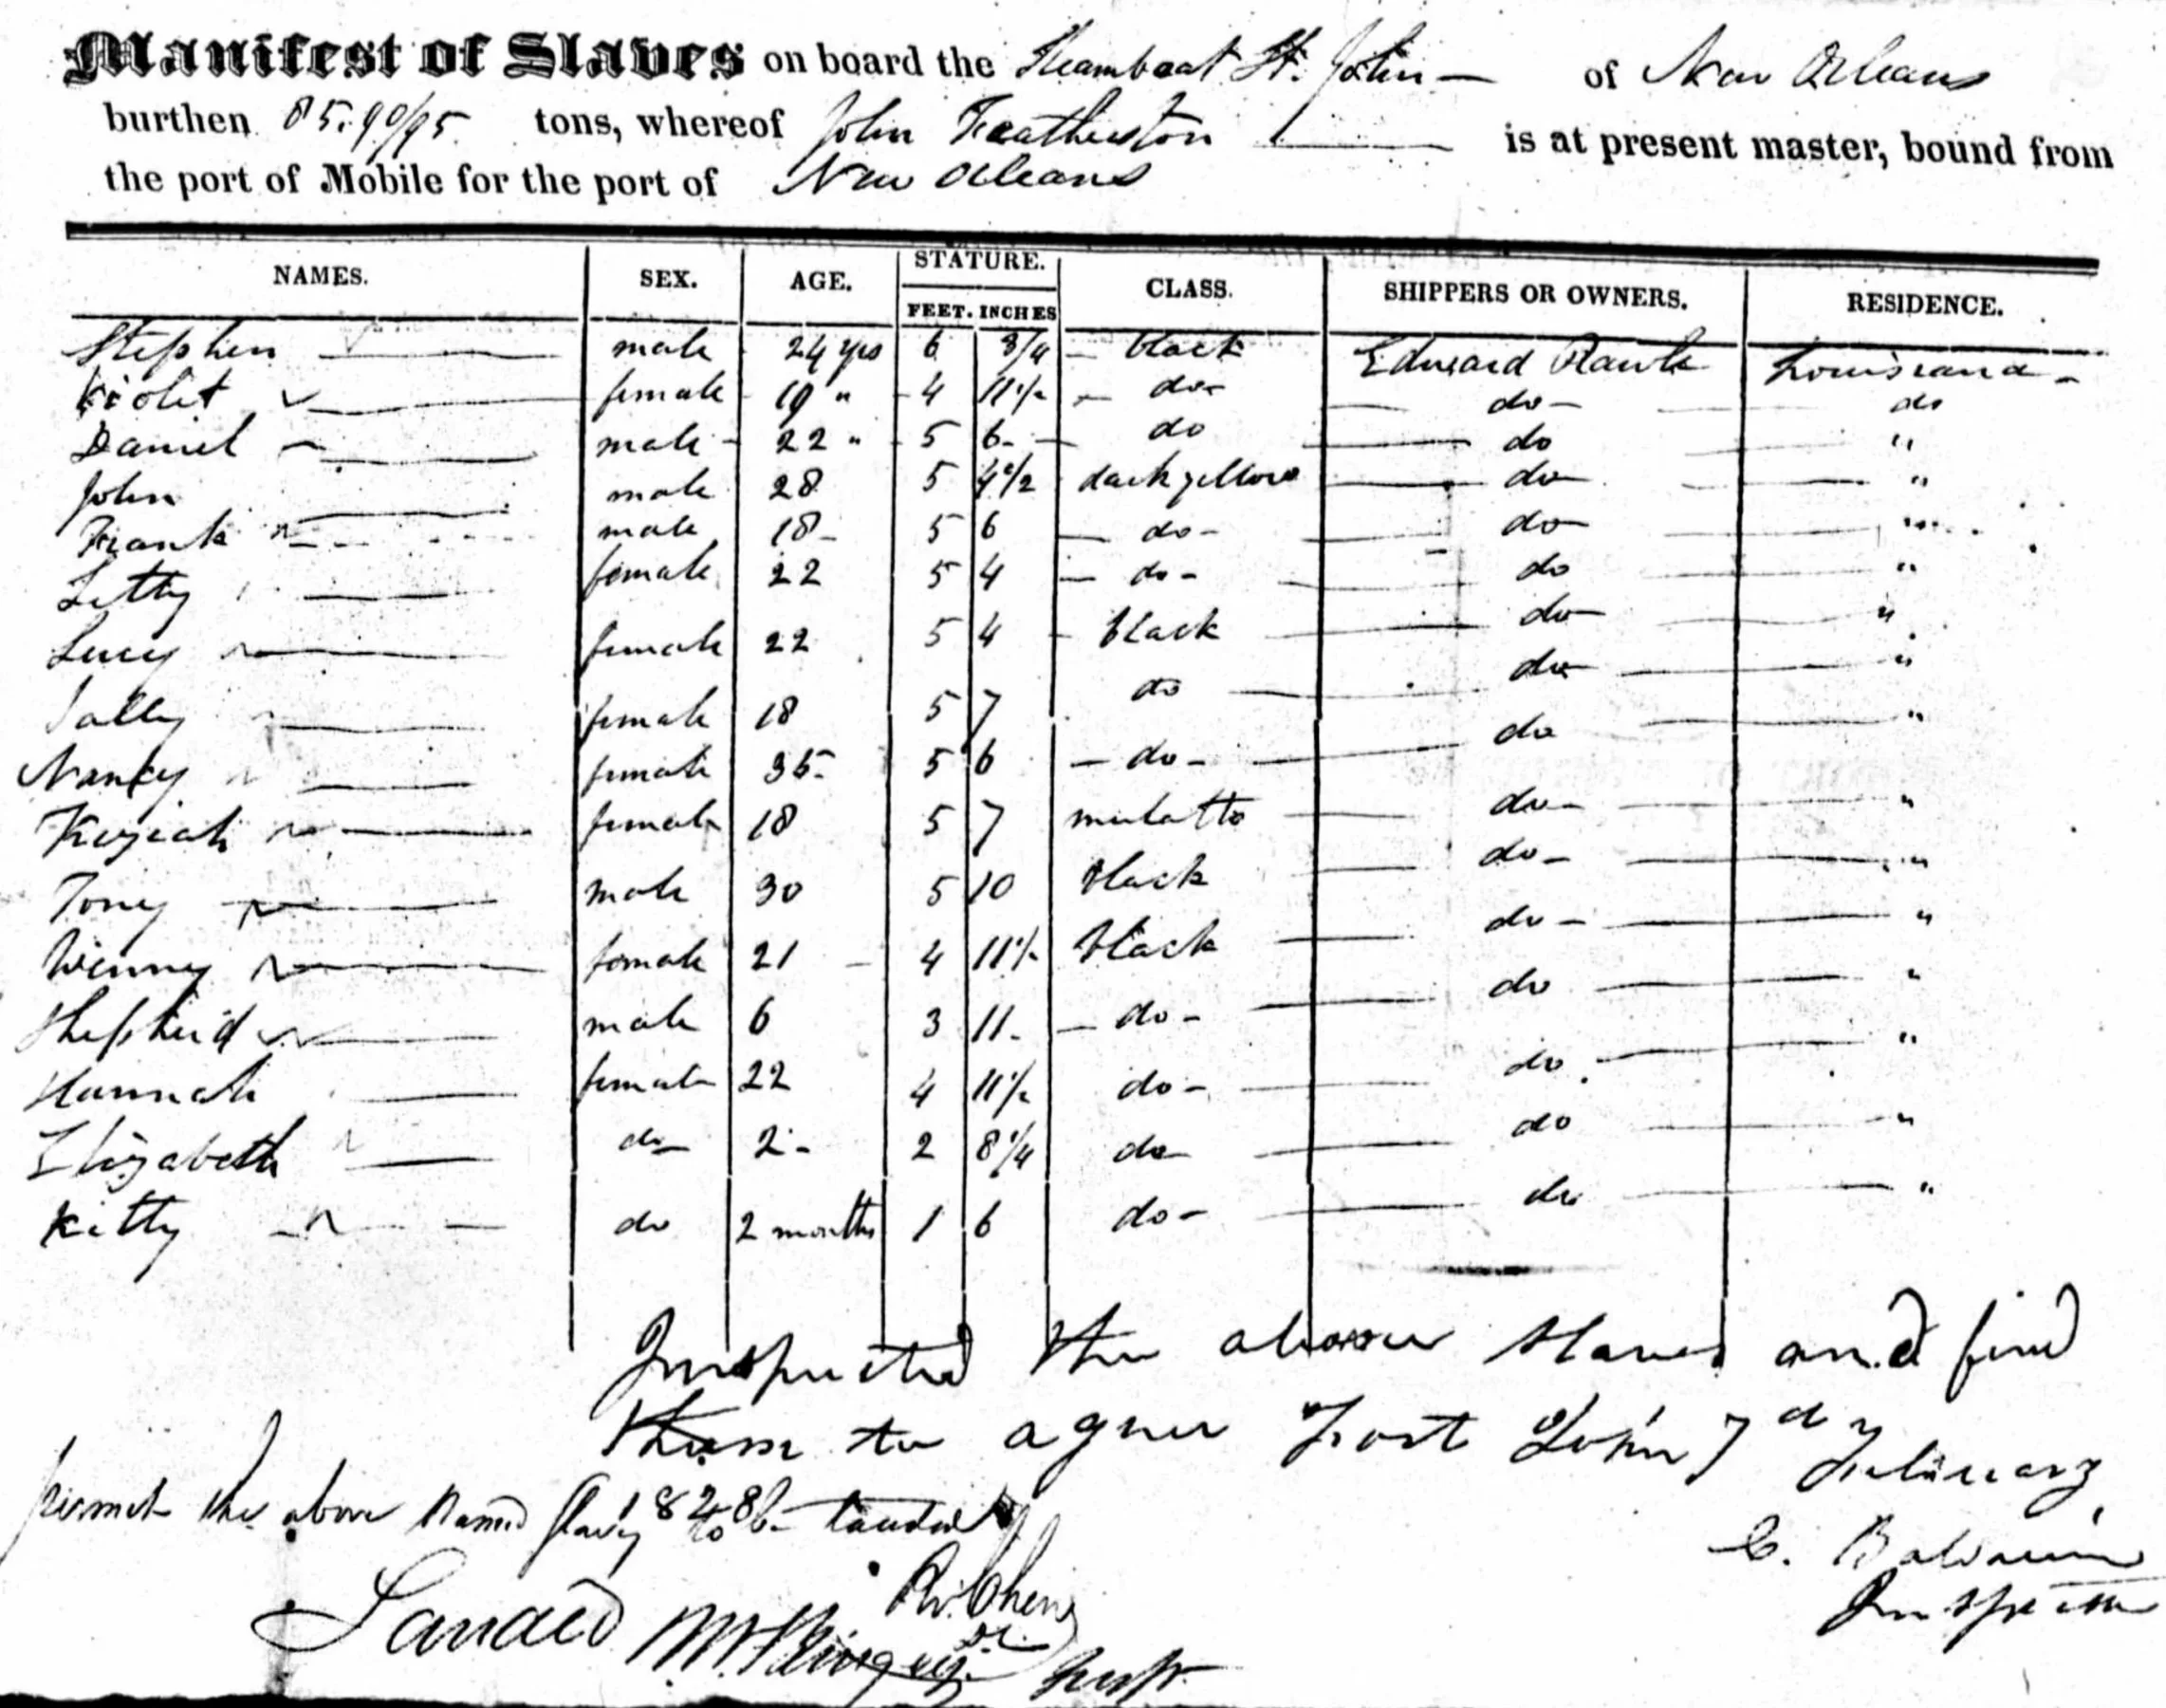 Manifest of Slaves on board the Steamboat St. John of New Orleans
burthen 85.90/95 tons, whereof John Featherston is at present master, bound from
the port of Mobile for the port of New Orleans
NAMES. SEX. AGE. STATURE. CLASS. SHIPPERS OR OWNERS. RESIDENCE.
FEET. INCHES
Stephen male 24 yrs 6 3/4 black Edward Louisiana
Violet female 19 " 4 11 1/2 do do do
Daniel male 22 " 5 6 do do "
John male 28 5 4 1/2 dark yellow do "
Frank male 18 5 6 do do "
Letty female 22 5 4 do do "
Lucy female 22 5 4 black do "
Sally female 18 5 7 do do "
Nancy female 35 5 6 do do "
Keziah female 18 5 7 mulatto do "
Tony male 30 5 10 black do "
Winney female 21 4 11 1/2 black do "
Shepherd male 6 3 11 do do "
Hannah female 22 4 11 1/2 do do "
Elizabeth do 2 2 8 1/4 do do "
Kitty do 2 months 1 6 do do "
Inspected the above Slaves and find
them to agree Fort St John 7th February
1828
C. Baldwin
Inspector
permit the above Named Slaves to be landed
Landed